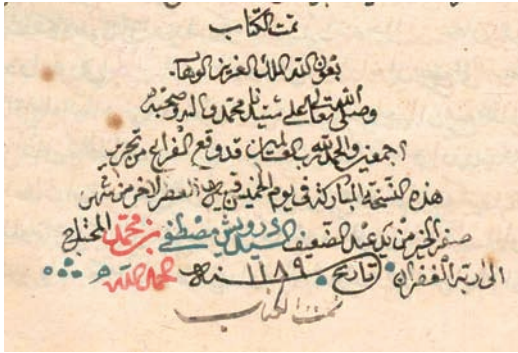 تمت الكتاب
بعون الله الملك العزيز الوهاب
وصلى الله تعالى على سيدنا محمد وآله وصحبه
اجمعين والحمد لله رب العالمين قد وقع الفراغ من تحرير
هذه النسخة المباركة في يوم الخميس قريب العصر الاخر من شهر
صفر الخير من يد عبد الضعيف السيد درويش مصطفى بن محمد المحتاج
الى ربه الغفران تاريخ سنه ١١٨٩
تمت الكتاب